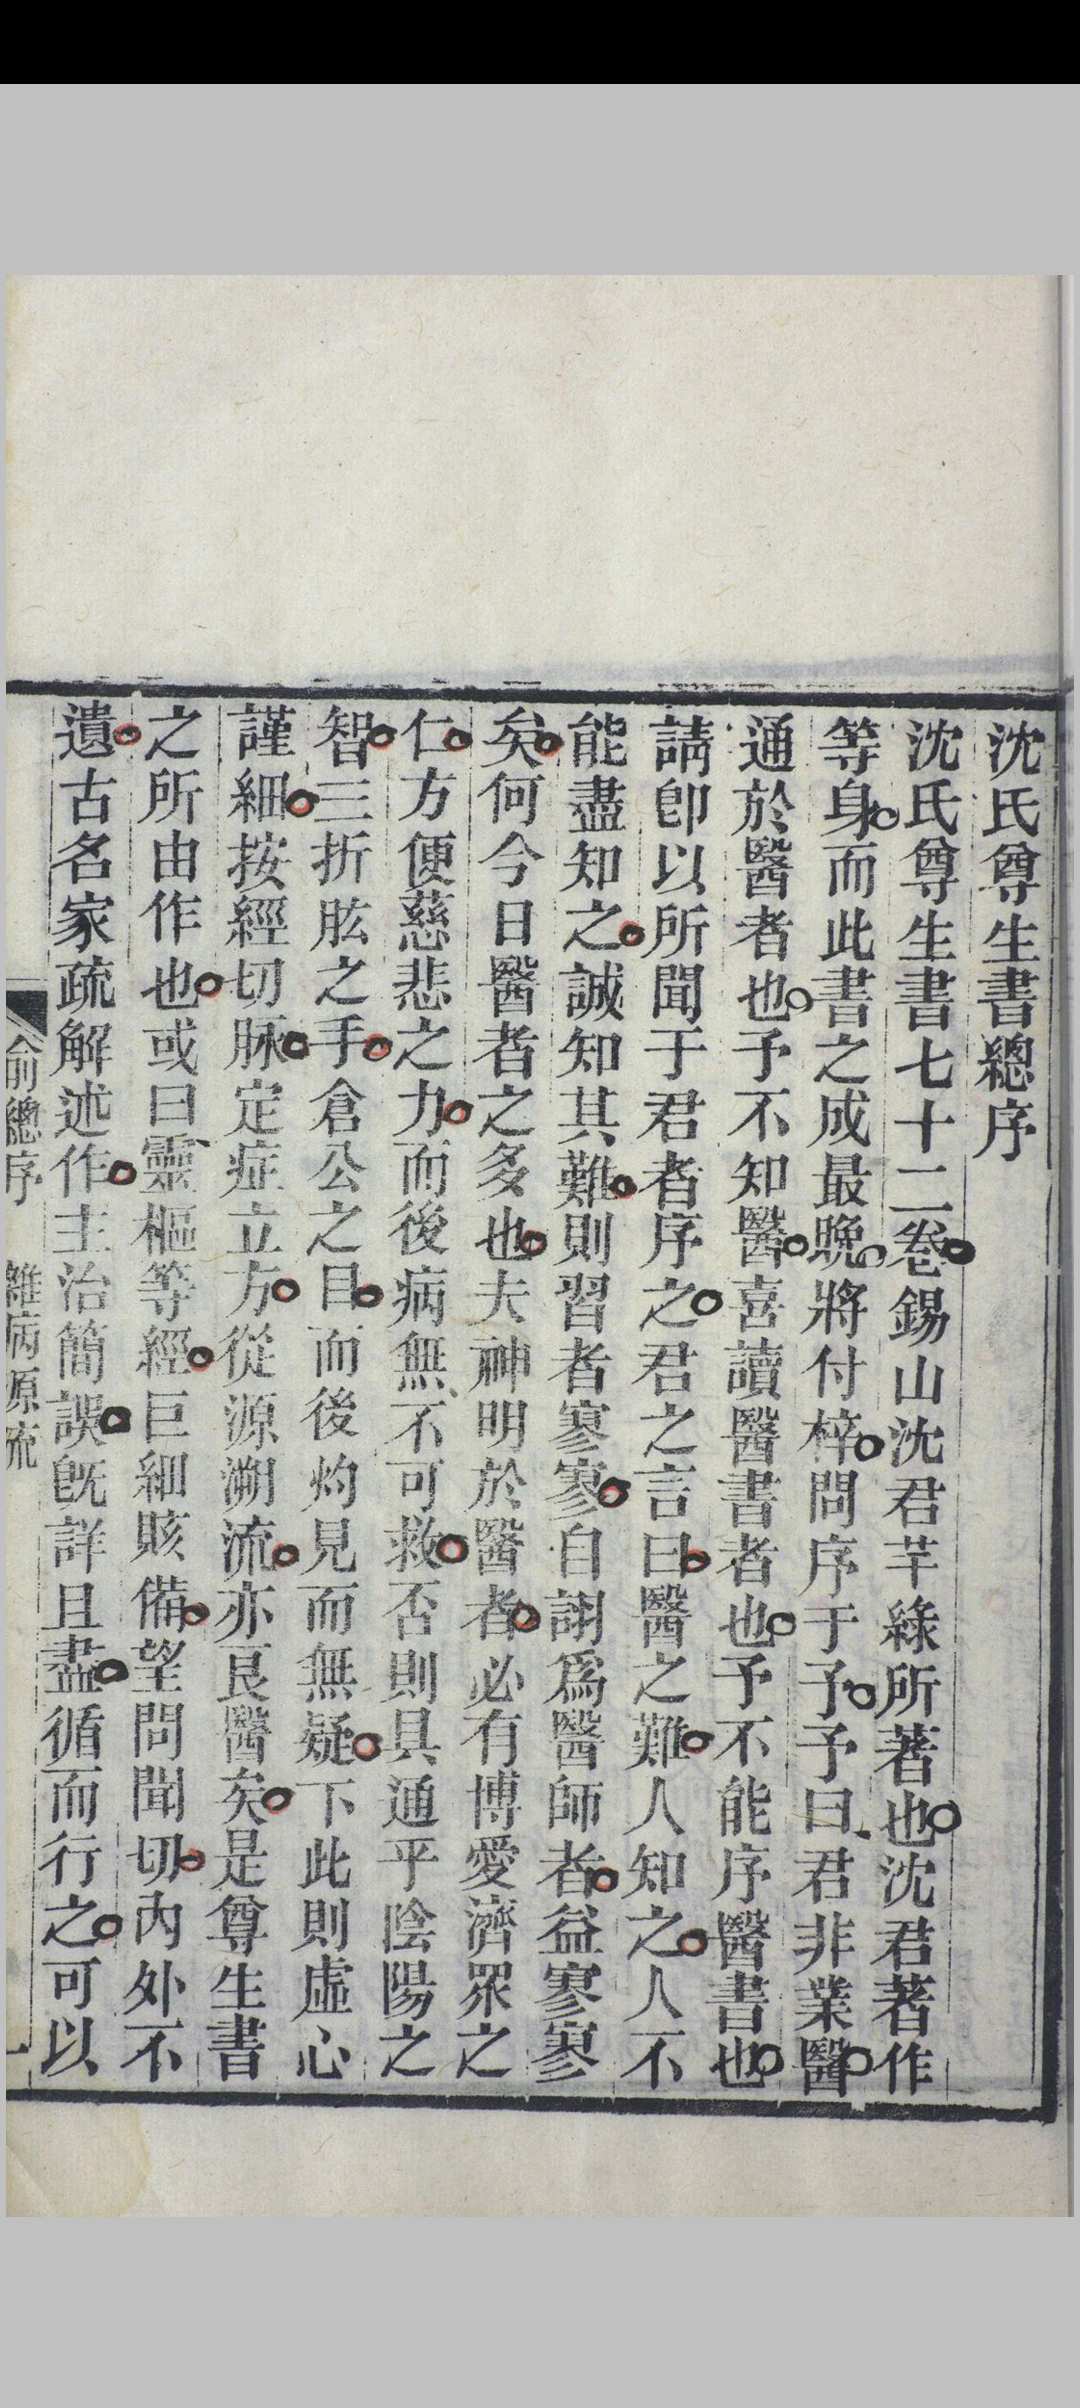 沈氏尊生書總序
沈氏尊生書七十二卷錫山沈君芊綠所著也沈君著作
等身而此書之成最晚將付梓問序于予予曰君非業醫
通於醫者也予不知醫喜讀醫書者也予不能序醫書也
請卽以所聞于君者序之君之言曰醫之難人知之人不
能盡知之誠知其難則習者寥寥自詡爲醫師者益寥寥
矣何今日醫者之多也夫神明於醫者必有博愛濟眾之
仁方便慈悲之力而後病無不可救否則具通平陰陽之
智三折肱之手倉公之目而後灼見而無疑下此則虛心
謹細按經切脉定症立方從源溯流亦良醫矣是尊生書
之所由作也或曰靈樞等經巨細賅備望問聞切內外不
遺古名家疏解述作主治簡誤旣詳且盡循而行之可以
俞總序 雜病源流 一